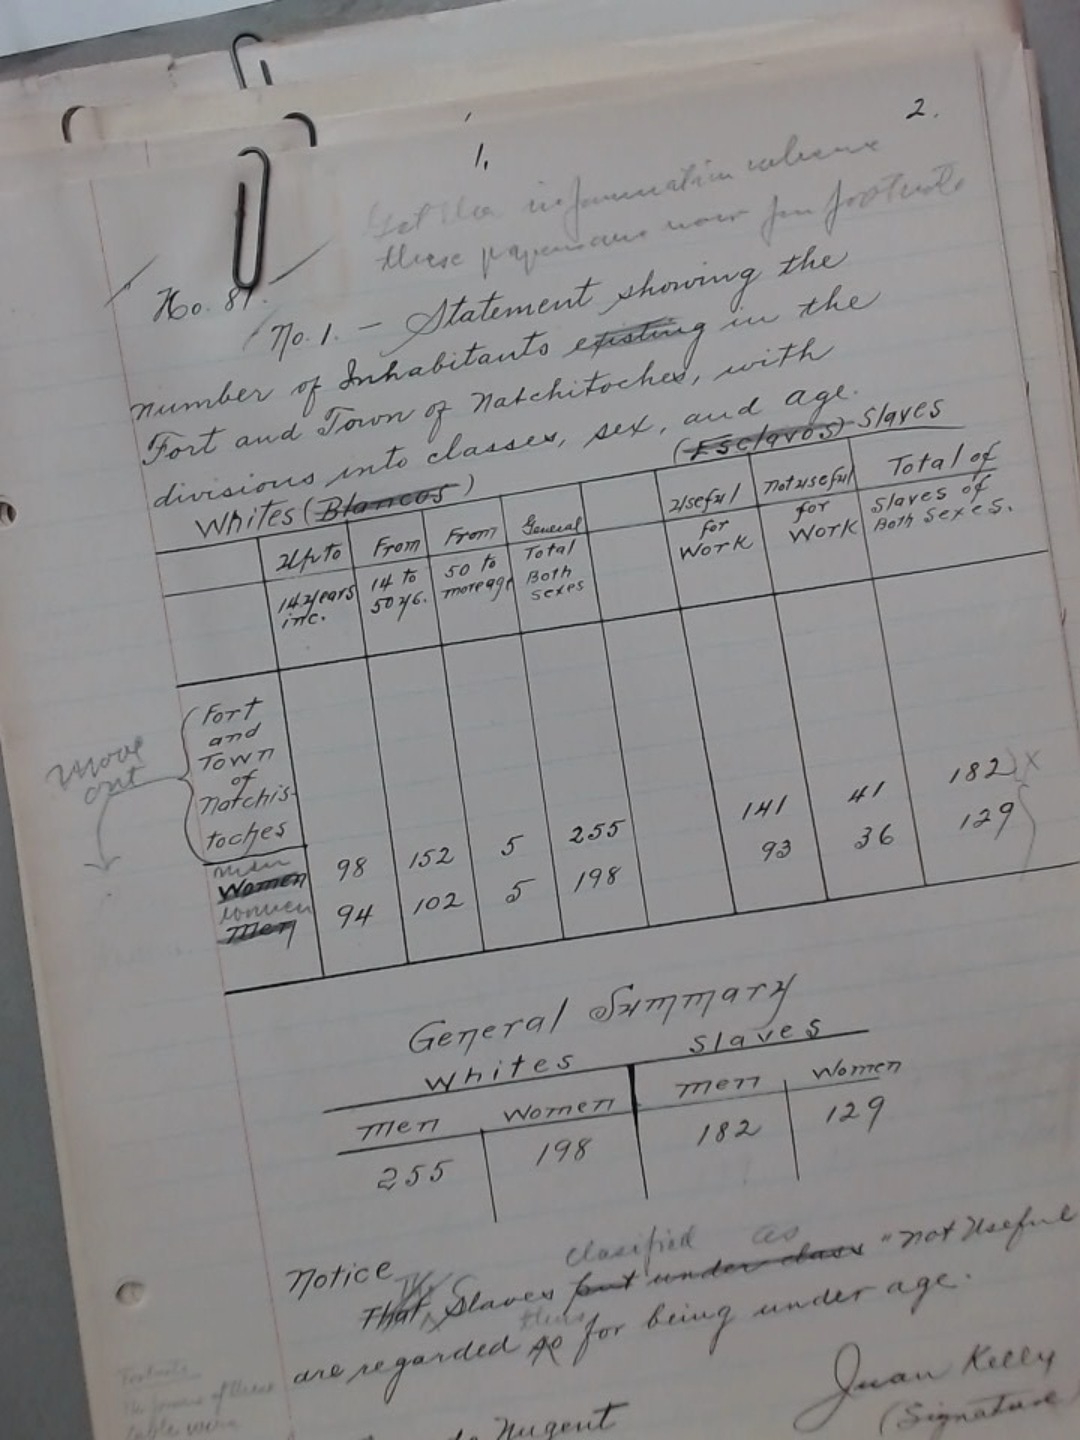 1.
2.
Get the information where
these papers are now for footnote
No. 81.
No. 1. - Statement showing the
number of Inhabitants existing in the
Fort and Town of Natchitoches, with
divisions into classes, sex, and age.
Whites (Blancos) (Esclavos) Slaves
Up to From From General Useful Not useful Total of
14 years inc. 14 to 50 yrs. 50 to more age Total Both Sexes for Work for Work Slaves of Both Sexes.
Move out
Fort
and
Town
of
Natchis-
toches
men Women 98 152 5 255 141 41 182 X
women Men 94 102 5 198 93 36 129
General Summary
Whites Slaves
Men Women Men Women
255 198 182 129
Notice
clasified as
That The Slaves put under class "not Useful
thus
are regarded so for being under age.
Juan Kelly
(Signature
Nugent
Footnote
The forms of these
table were